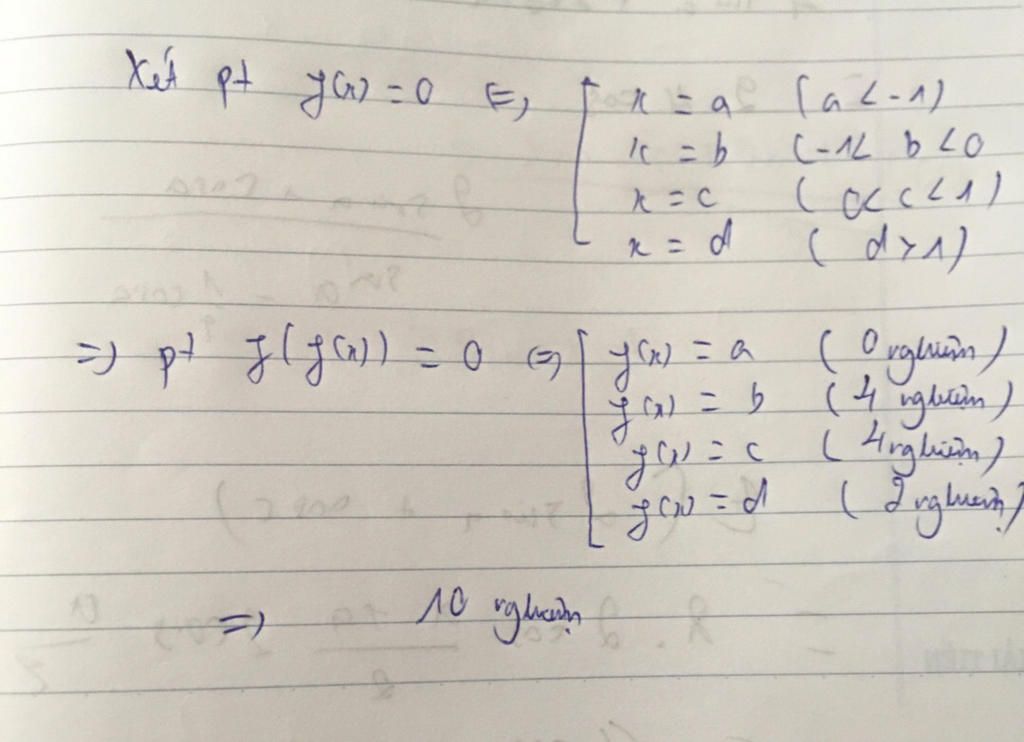 Xét pt f(x) = 0 <=> [ x = a (a < -1)
x = b (-1 < b < 0
x = c (0 < c < 1)
x = d (d > 1)
=> pt f(f(x)) = 0 <=> [ f(x) = a (0 nghiệm)
f(x) = b (4 nghiệm)
f(x) = c (4 nghiệm)
f(x) = d (2 nghiệm)
=> 10 nghiệm